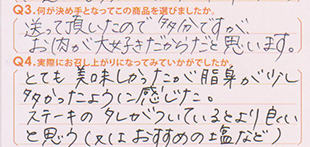 Q3.何が決め手となってこの商品を選びましたか。
送って頂いたので多分ですが
お肉が大好きだからだと思います。
Q4.実際にお召し上がりになってみていかがでしたか。
とても美味しかったが脂身が少し
多かったように感じた。
ステーキのタレがついているとより良い
と思う(又はおすすめの塩など)